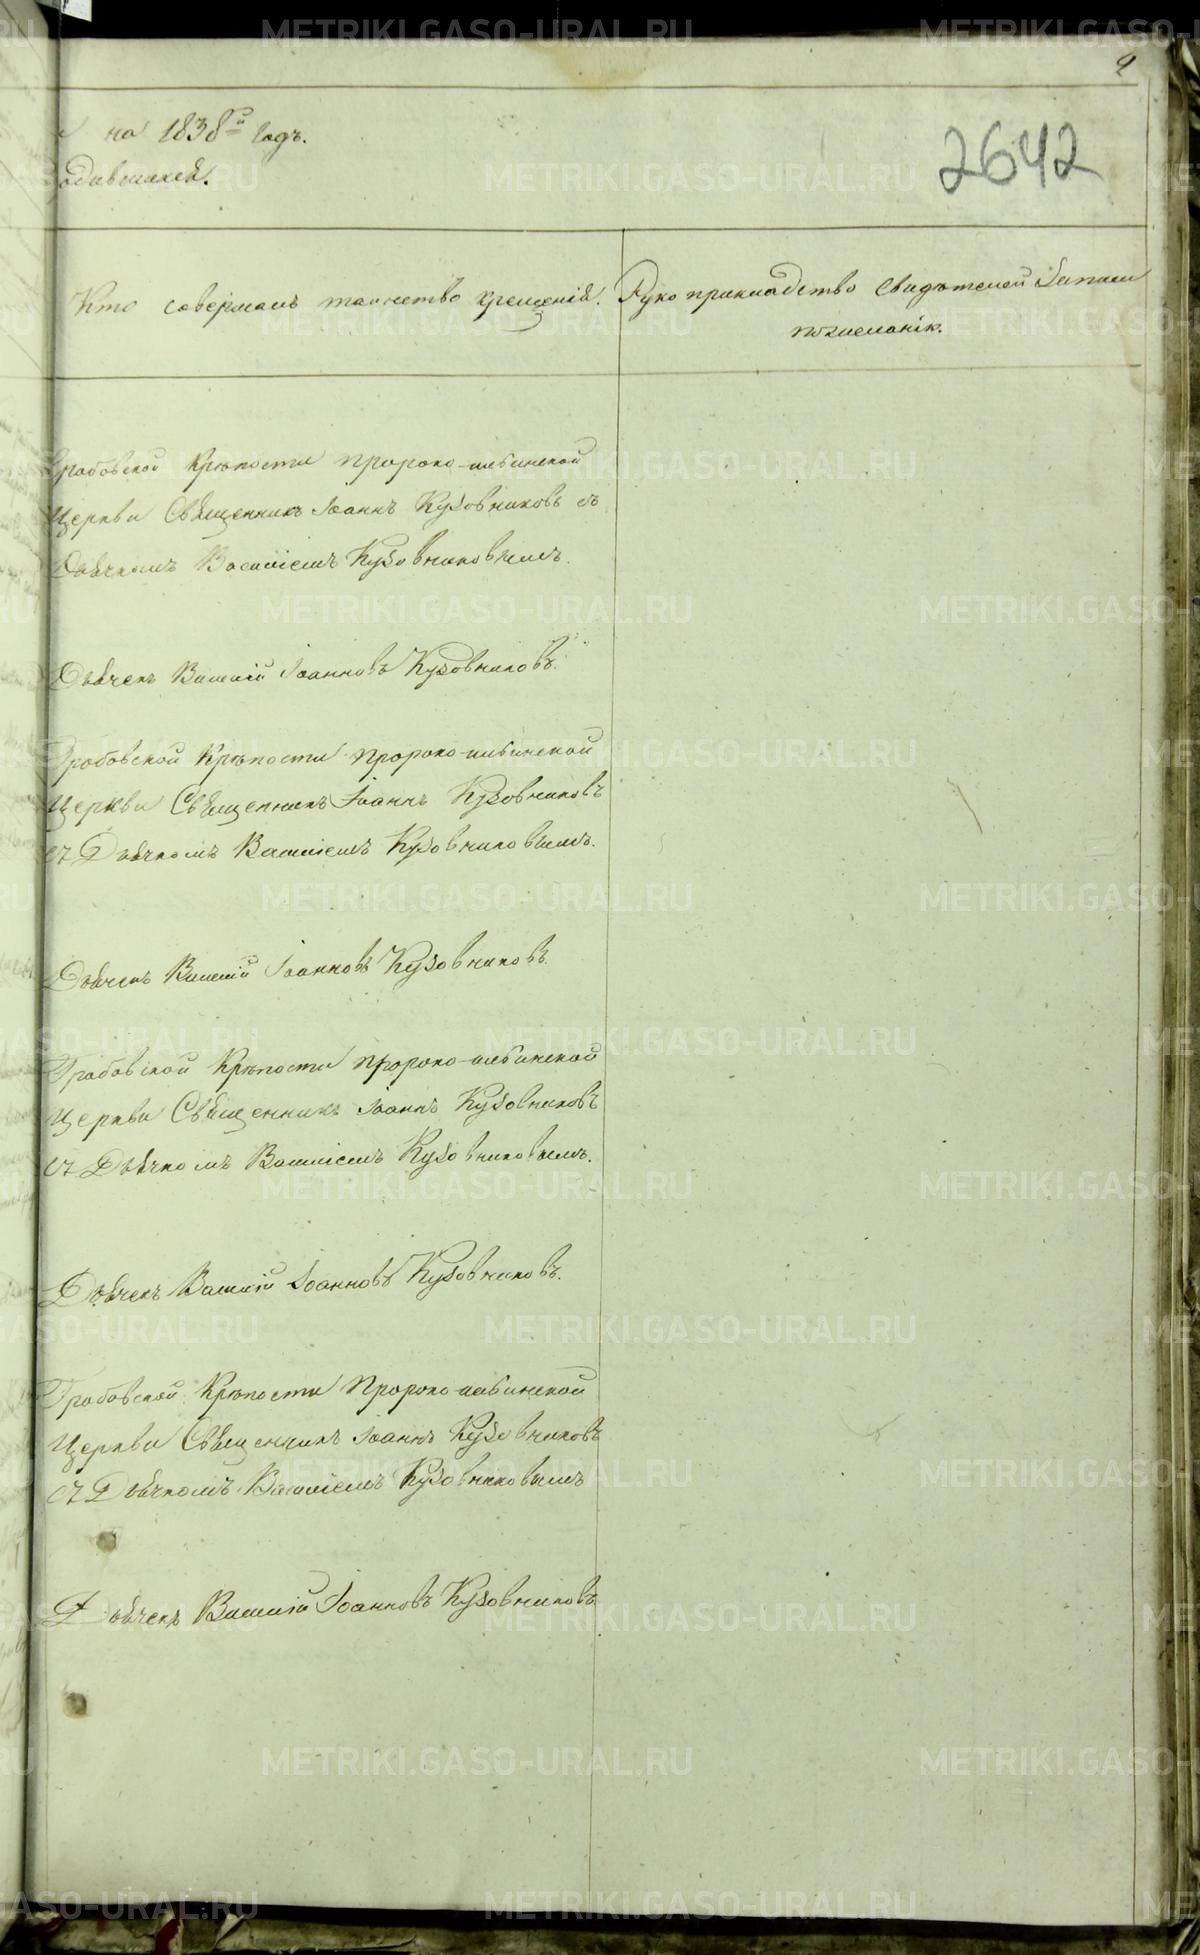 2
на 1838й годъ.
2642
одившихся.
Кто совершалъ таинство крещенія.
Рукоприкладство свидѣтелей записи
по желанію.
Грабовской Крѣпости Пророко-ильинской
Церкви Священникъ Іоаннъ Кузовниковъ съ
Дьячкомъ Василіемъ Кузовниковымъ.
Дьячекъ Василій Іоанновъ Кузовниковъ.
Грабовской Крѣпости Пророко-ильинской
Церкви Священникъ Іоаннъ Кузовниковъ
съ Дьячкомъ Василіемъ Кузовниковымъ.
Дьячекъ Василій Іоанновъ Кузовниковъ.
Грабовской Крѣпости Пророко-ильинской
Церкви Священникъ Іоаннъ Кузовниковъ
съ Дьячкомъ Василіемъ Кузовниковымъ.
Дьячекъ Василій Іоанновъ Кузовниковъ.
Грабовской Крѣпости Пророко-ильинской
Церкви Священникъ Іоаннъ Кузовниковъ
съ Дьячкомъ Василіемъ Кузовниковымъ
Дьячекъ Василій Іоанновъ Кузовниковъ
METRIKI.GASO-URAL.RU